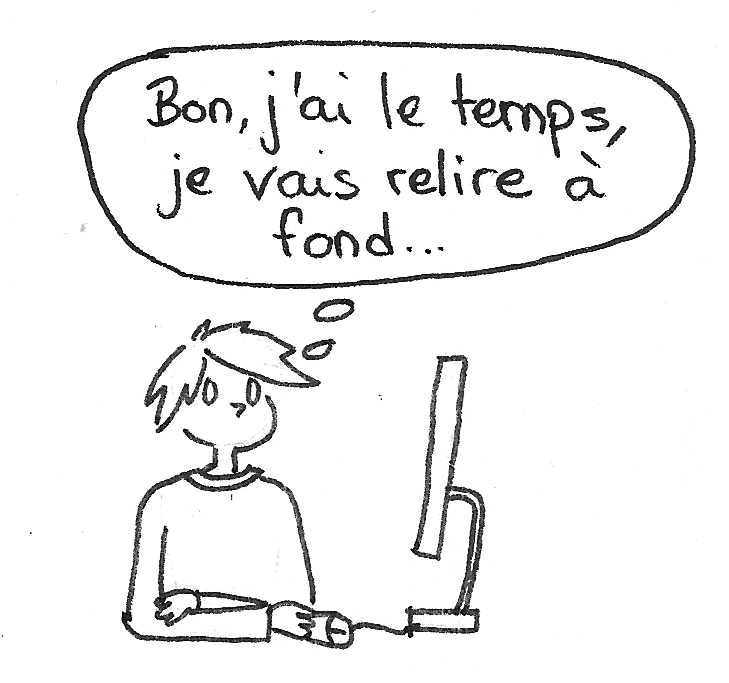 Bon, j'ai le temps,
je vais relire à
fond...